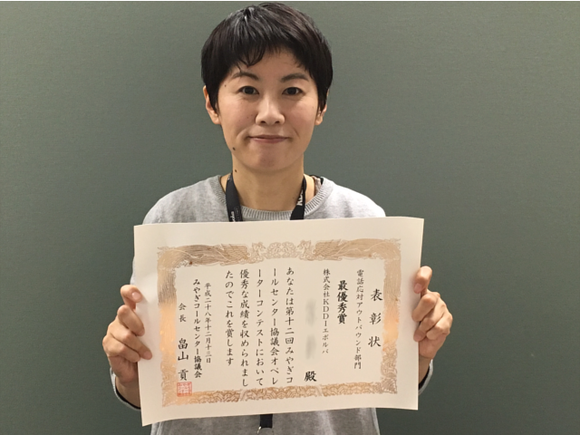 表彰状
電話応対アウトバウンド部門
最優秀賞
株式会社KDDIエボルバ
殿
あなたは第十二回みやぎコ
ールセンター協議会オペレ
ーターコンテストにおいて
優秀な成績を収められまし
たのでこれを賞します
平成二十八年十二月十三日
みやぎコールセンター協議会
会長 畠山 貢